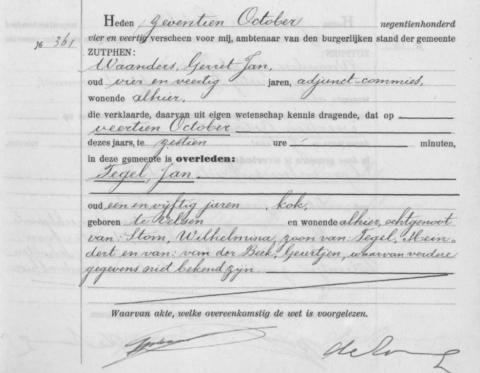 Heden zeventien October negentienhonderd
№ 361 vier en veertig verscheen voor mij, ambtenaar van den burgerlijken stand der gemeente
ZUTPHEN:
Waanders, Gerrit Jan,
oud vier en veertig jaren, adjunct-commies,
wonende alhier,
die verklaarde, daarvan uit eigen wetenschap kennis dragende, dat op
veertien October
dezes jaars, te zestien ure minuten,
in deze gemeente is overleden:
Tegel, Jan,
oud een en vijftig jaren, kok,
geboren te Velsen en wonende alhier, echtgenoot
van: Stom, Wilhelmina, zoon van Tegel, Mein-
dert en van: van der Beek, Geurtjen, waarvan verdere
gegevens niet bekend zijn.
Waarvan akte, welke overeenkomstig de wet is voorgelezen.